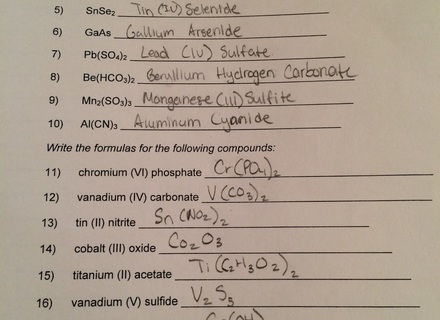 5) SnSe₂ Tin (IV) Selenide
6) GaAs Gallium Arsenide
7) Pb(SO₄)₂ Lead (IV) Sulfate
8) Be(HCO₃)₂ Beryllium Hydrogen Carbonate
9) Mn₂(SO₃)₃ Manganese (III) Sulfite
10) Al(CN)₃ Aluminum Cyanide
Write the formulas for the following compounds:
11) chromium (VI) phosphate Cr(PO₄)₂
12) vanadium (IV) carbonate V(CO₃)₂
13) tin (II) nitrite Sn(NO₂)₂
14) cobalt (III) oxide Co₂O₃
15) titanium (II) acetate Ti(C₂H₃O₂)₂
16) vanadium (V) sulfide V₂S₅